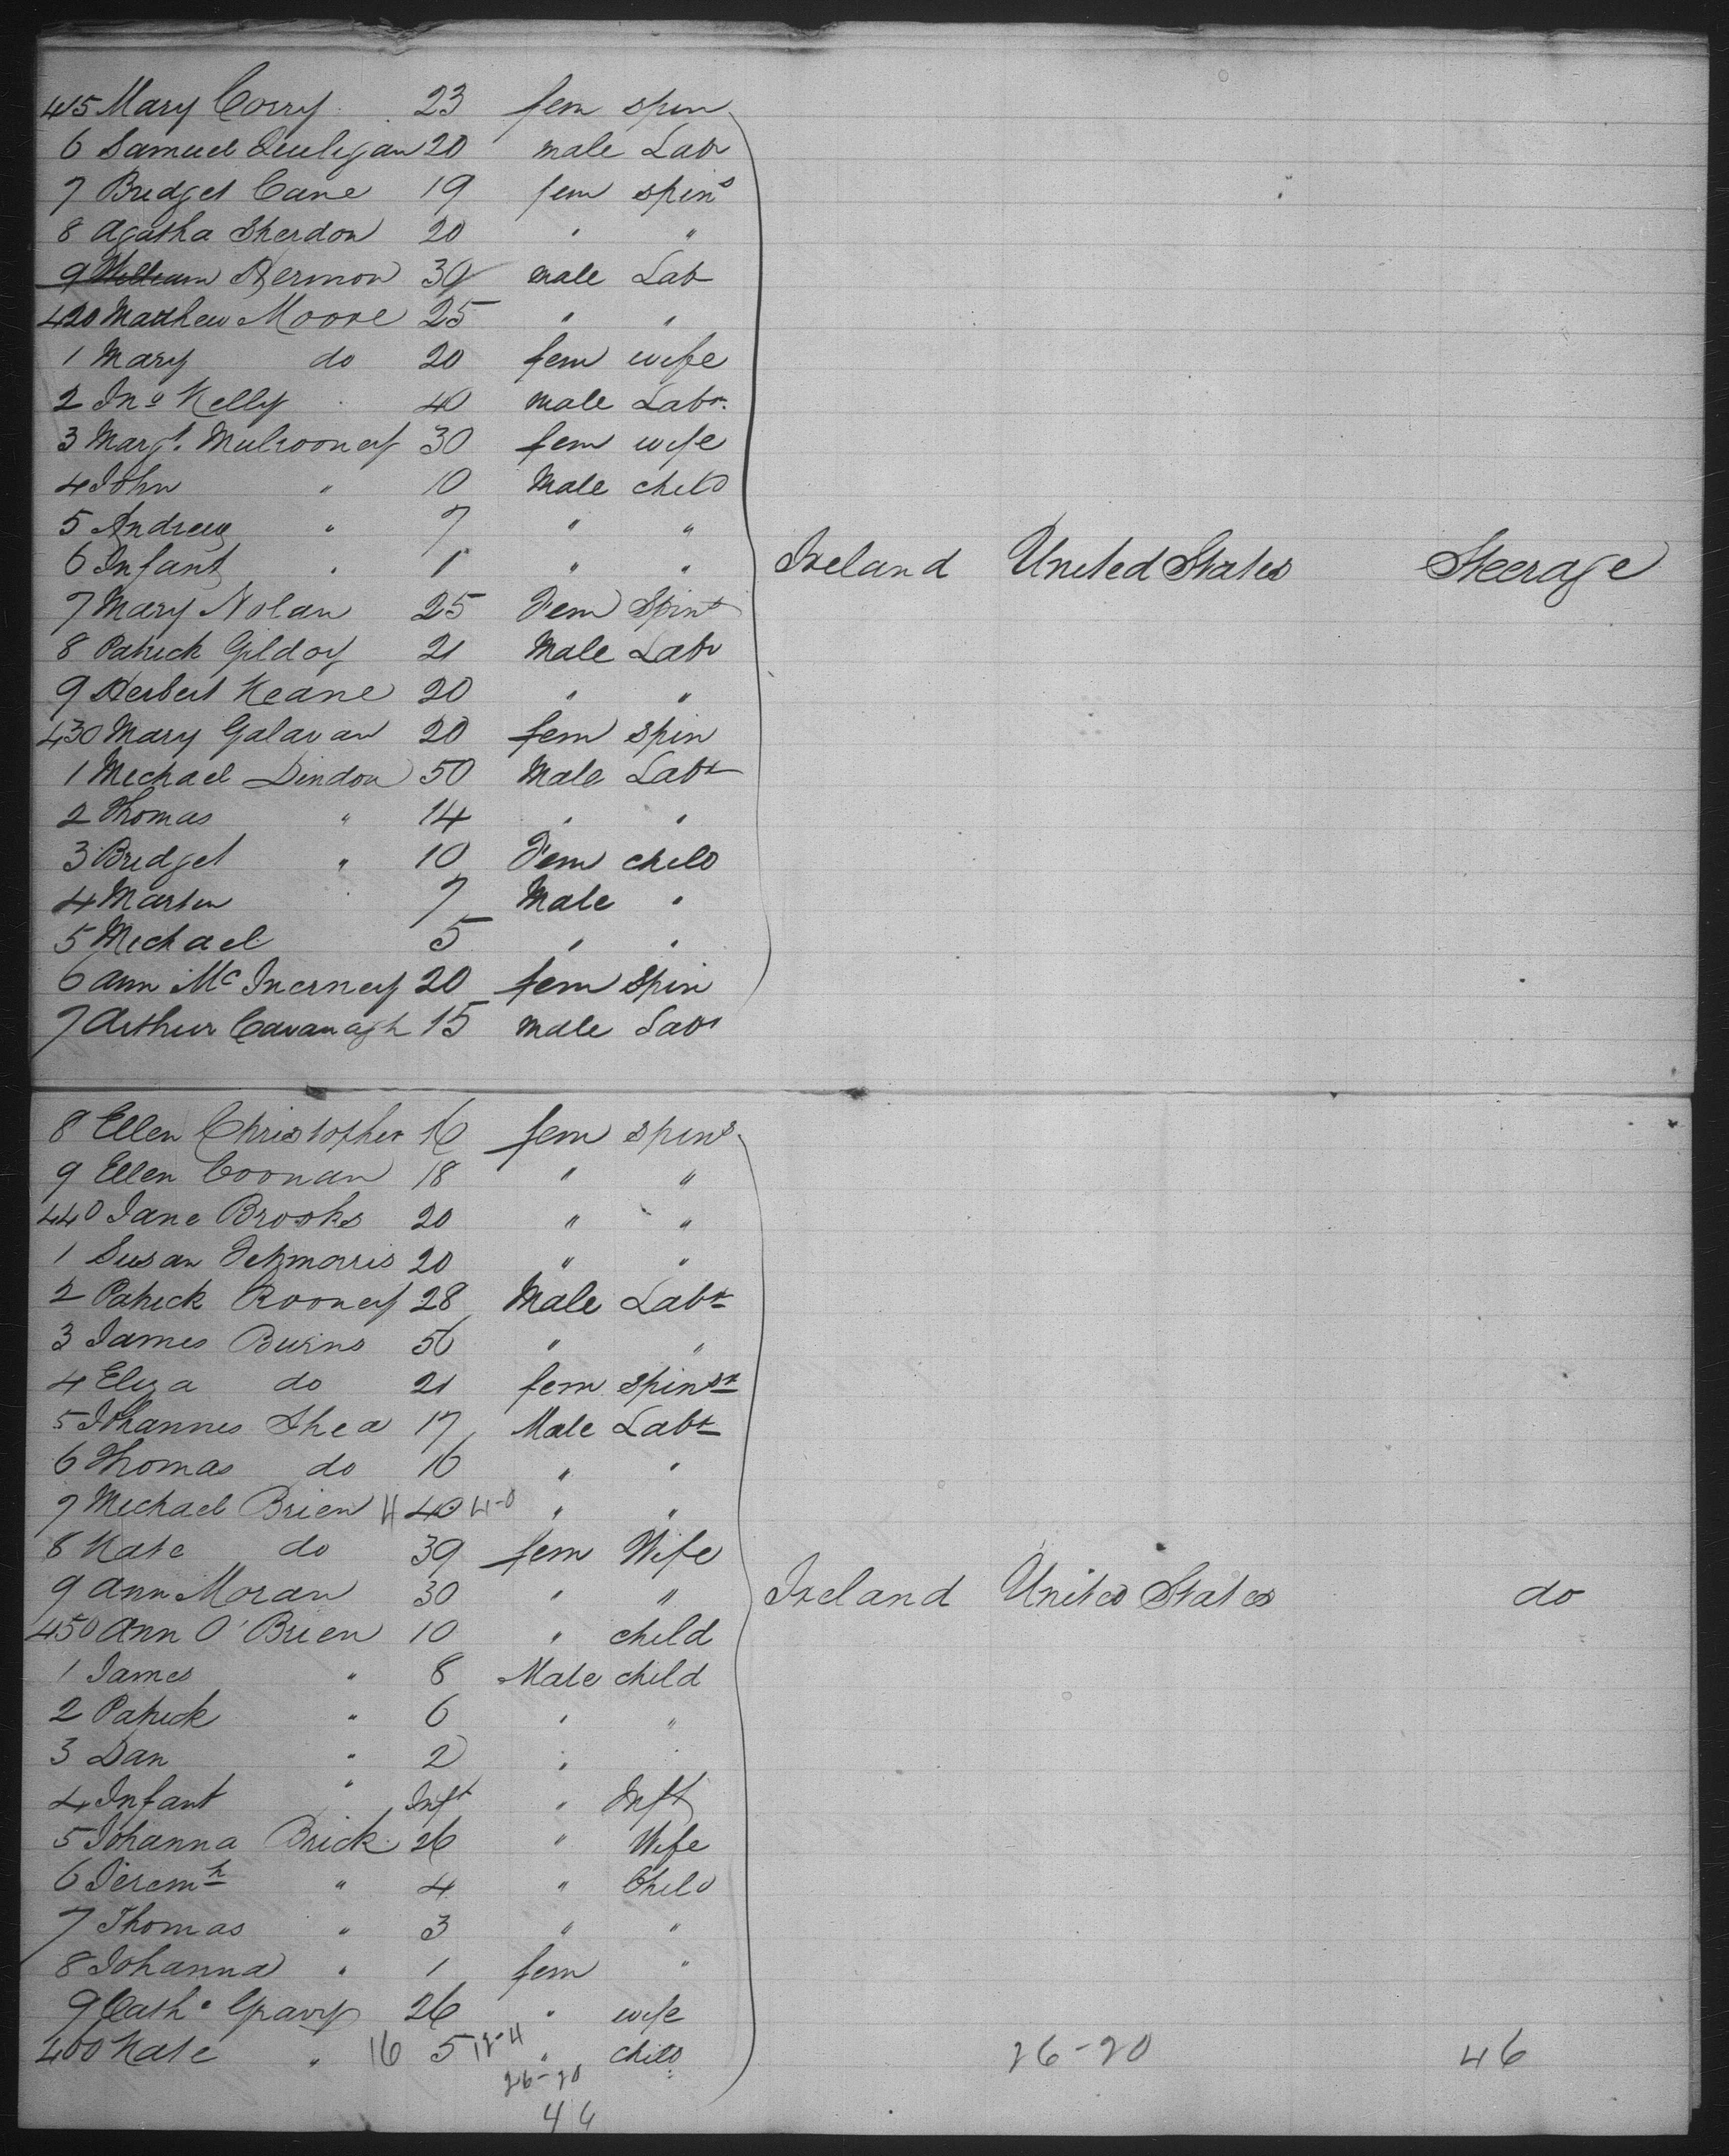 415 Mary Corry 23 fem spin
6 Samuel Quiligan 20 male Labr
7 Bridget Cane 19 fem spins
8 Agatha Sherdon 20 " "
9 William Hermon 30 male Lab
420 Matthew Moore 25 " "
1 Mary do 20 fem wife
2 Jno Kelly 40 male Labr.
3 Margt. Mulrooney 30 fem wife
4 John " 10 Male child
5 Andrew " 7 " "
6 Infant " 1 " " Ireland United States Steerage
7 Mary Nolan 25 Fem Spinr
8 Patrick Gildoy 21 Male Labr
9 Herbert Keane 20 " "
430 Mary Galavan 20 fem spin
1 Michael Dindon 50 Male Labr
2 Thomas " 14 " "
3 Bridget " 10 Fem child
4 Martin 7 Male "
5 Michael 5 " "
6 Ann McInerney 20 fem Spin
7 Arthur Cavanagh 15 male Labr
8 Ellen Christopher 16 fem spins
9 Ellen Coonan 18 " "
440 Jane Brooks 20 " "
1 Susan Fitzmorris 20 " "
2 Patrick Rooney 28 Male Labr
3 James Burns 56 " "
4 Eliza do 21 fem spinsr
5 Johannes Shea 17 Male Labr
6 Thomas do 16 " "
7 Michael Brien 4 40 4-0 " "
8 Kate do 39 fem Wife
9 Ann Moran 30 " " Ireland United States do
450 Ann O'Brien 10 " child
1 James " 8 Male child
2 Patrick " 6 " "
3 Dan " 2 "
4 Infant " Inft " Inft
5 Johanna Brick 26 " Wife
6 Jeremh " 4 " Child
7 Thomas " 3 " "
8 Johanna " 1 fem "
9 Cath. Gravy 26 " wife
460 Kate " 16 5 12-4 " child 26-20 46
26-20
46